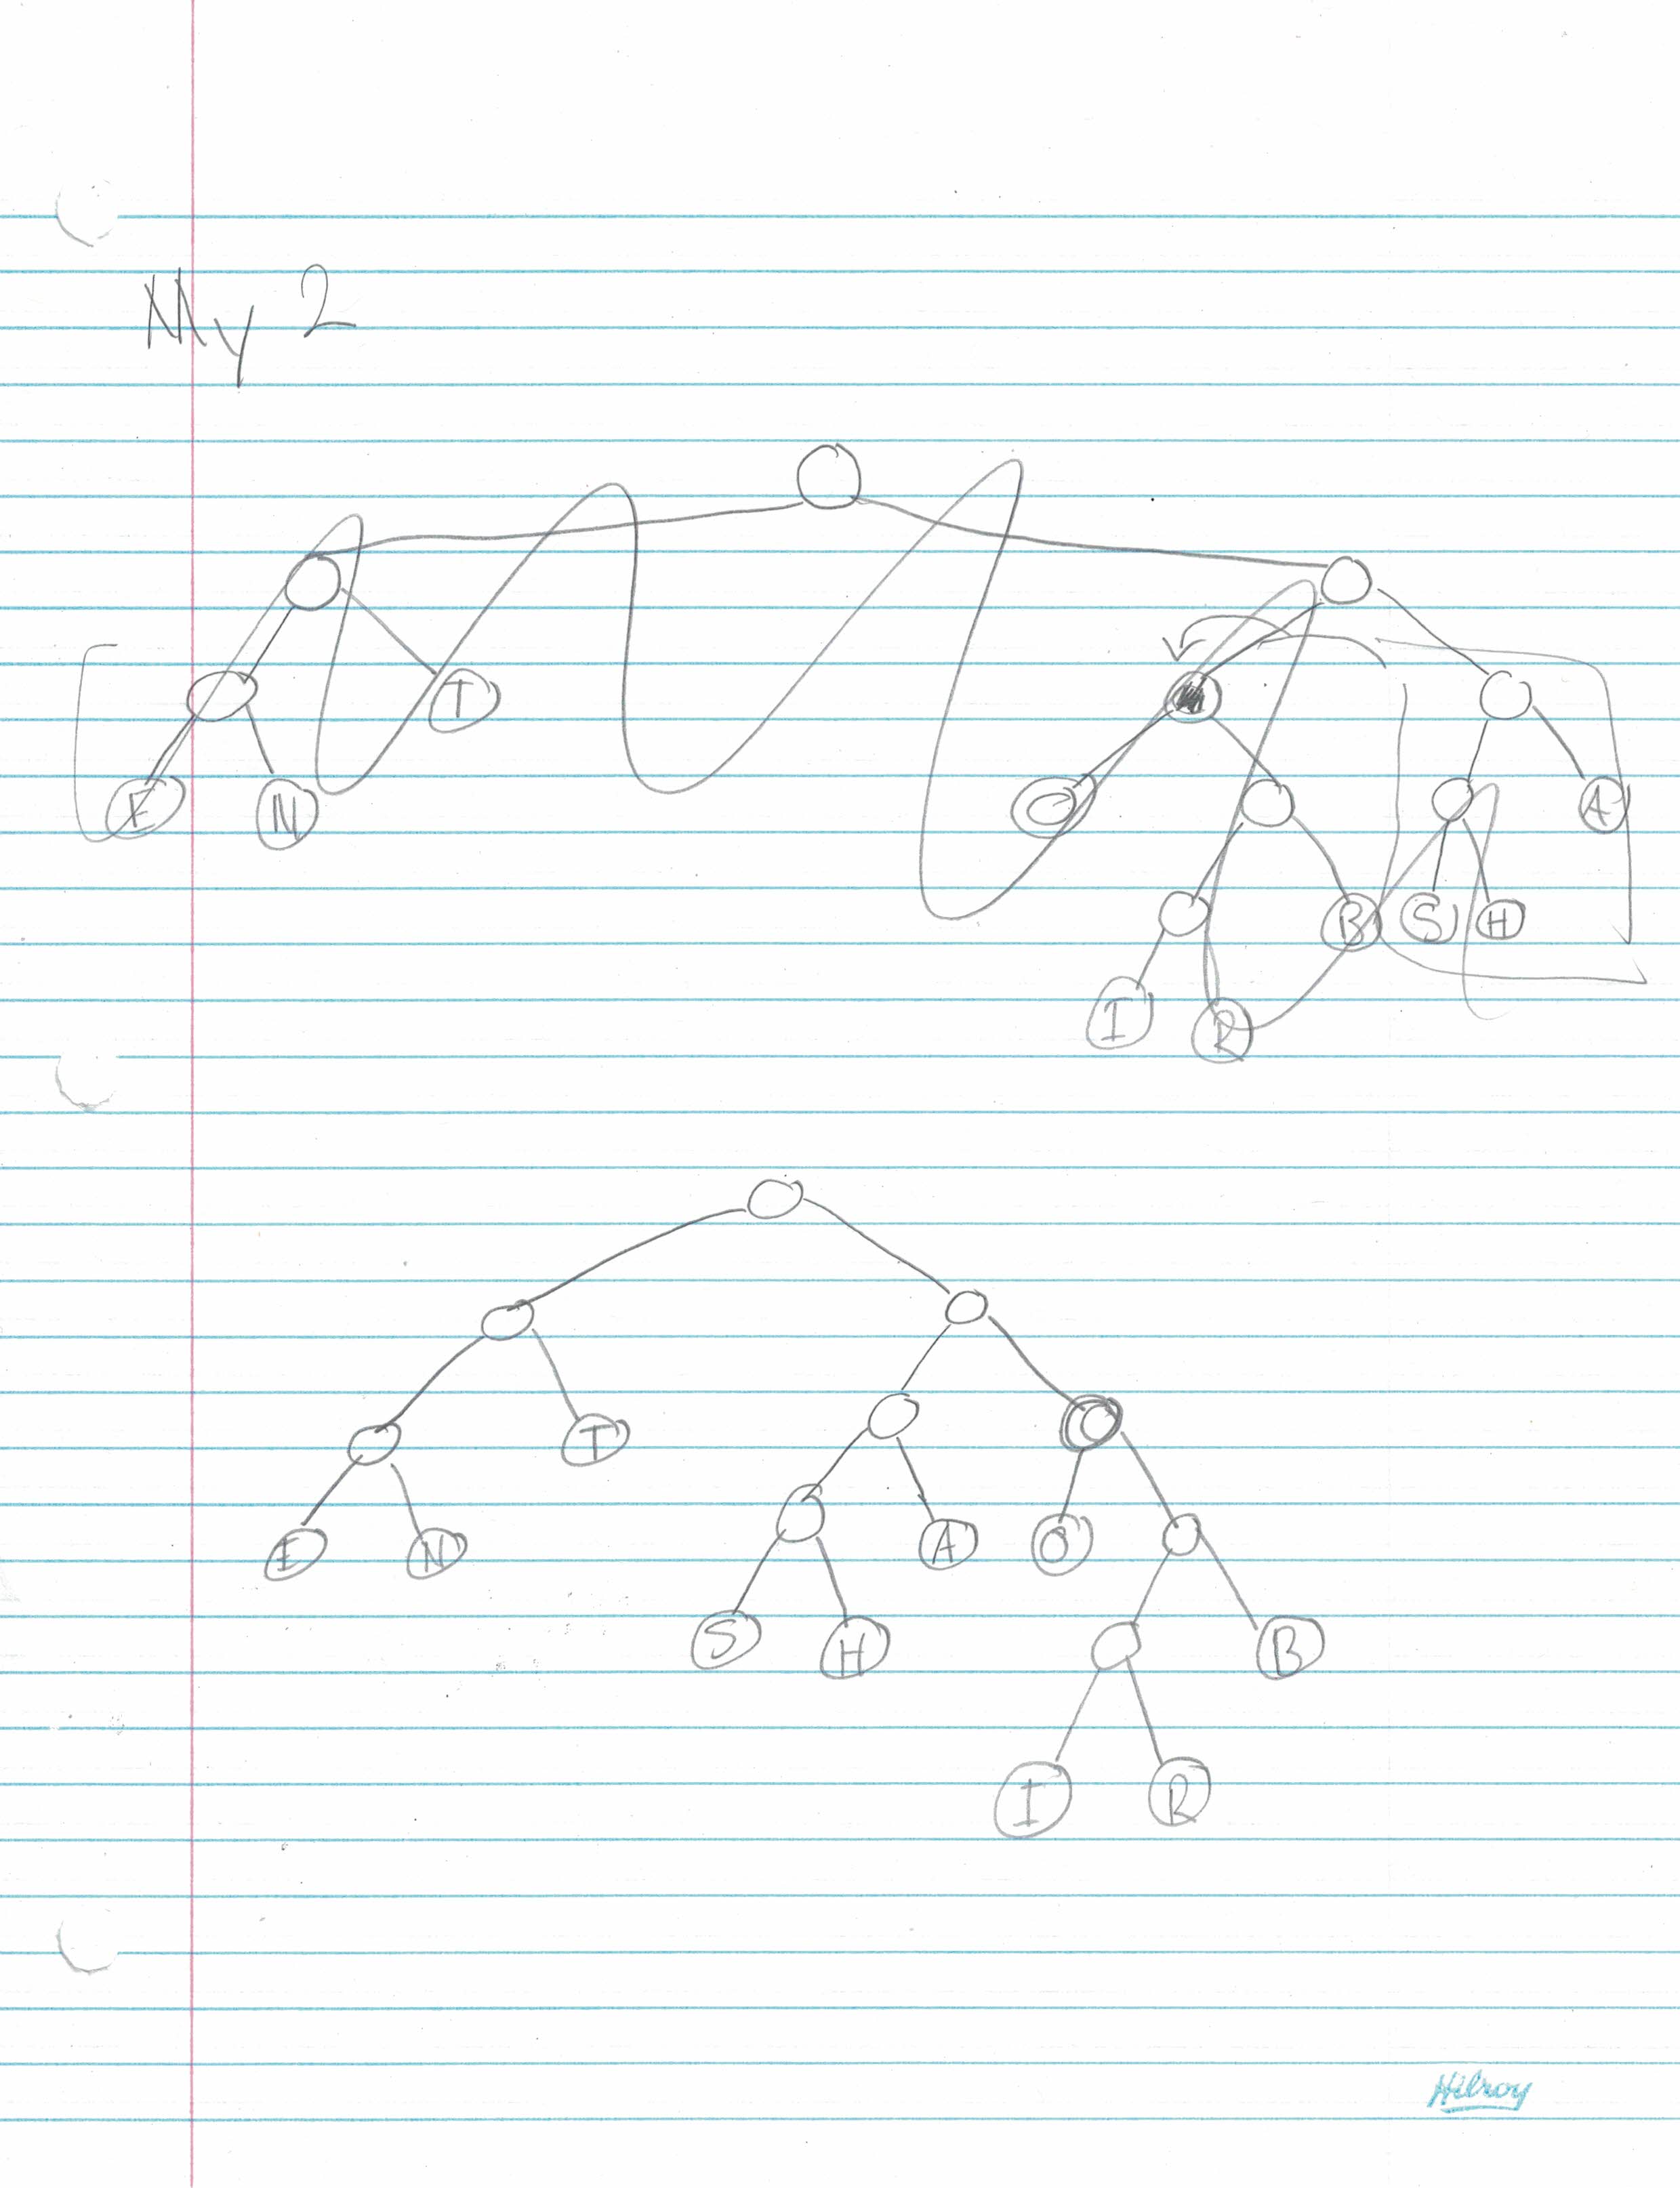 My 2
T
E N O A
B S H
I R
T
E N A O
S H B
I R
Hilroy